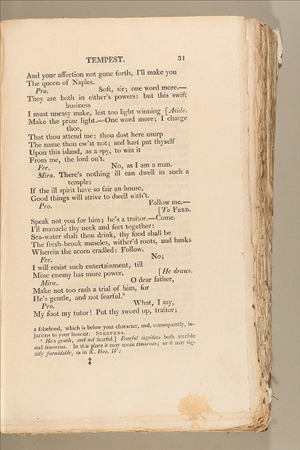 TEMPEST. 31
And your affection not gone forth, I'll make you
The queen of Naples.
Pro. Soft, sir; one word more.—
They are both in either's powers: but this swift
business
I must uneasy make, lest too light winning [Aside.
Make the prize light.—One word more; I charge
thee,
That thou attend me: thou dost here usurp
The name thou ow'st not; and hast put thyself
Upon this island, as a spy, to win it
From me, the lord on't.
Fer. No, as I am a man.
Mira. There's nothing ill can dwell in such a
temple:
If the ill spirit have so fair an house,
Good things will strive to dwell with't.
Pro. Follow me.—
[To FERD.
Speak not you for him; he's a traitor.—Come.
I'll manacle thy neck and feet together:
Sea-water shalt thou drink, thy food shall be
The fresh-brook muscles, wither'd roots, and husks
Wherein the acorn cradled: Follow.
Fer. No;
I will resist such entertainment, till
Mine enemy has more power. [He draws.
Mira. O dear father,
Make not too rash a trial of him, for
He's gentle, and not fearful.
Pro. What, I say,
My foot my tutor! Put thy sword up, traitor;
a falsehood, which is below your character, and, consequently, injurious
to your honour. STEEVENS.
He's gentle, and not fearful.] Fearful signifies both terrible
and timorous. In this place it may mean timorous; or it may signify
formidable, as in K. Hen. IV: